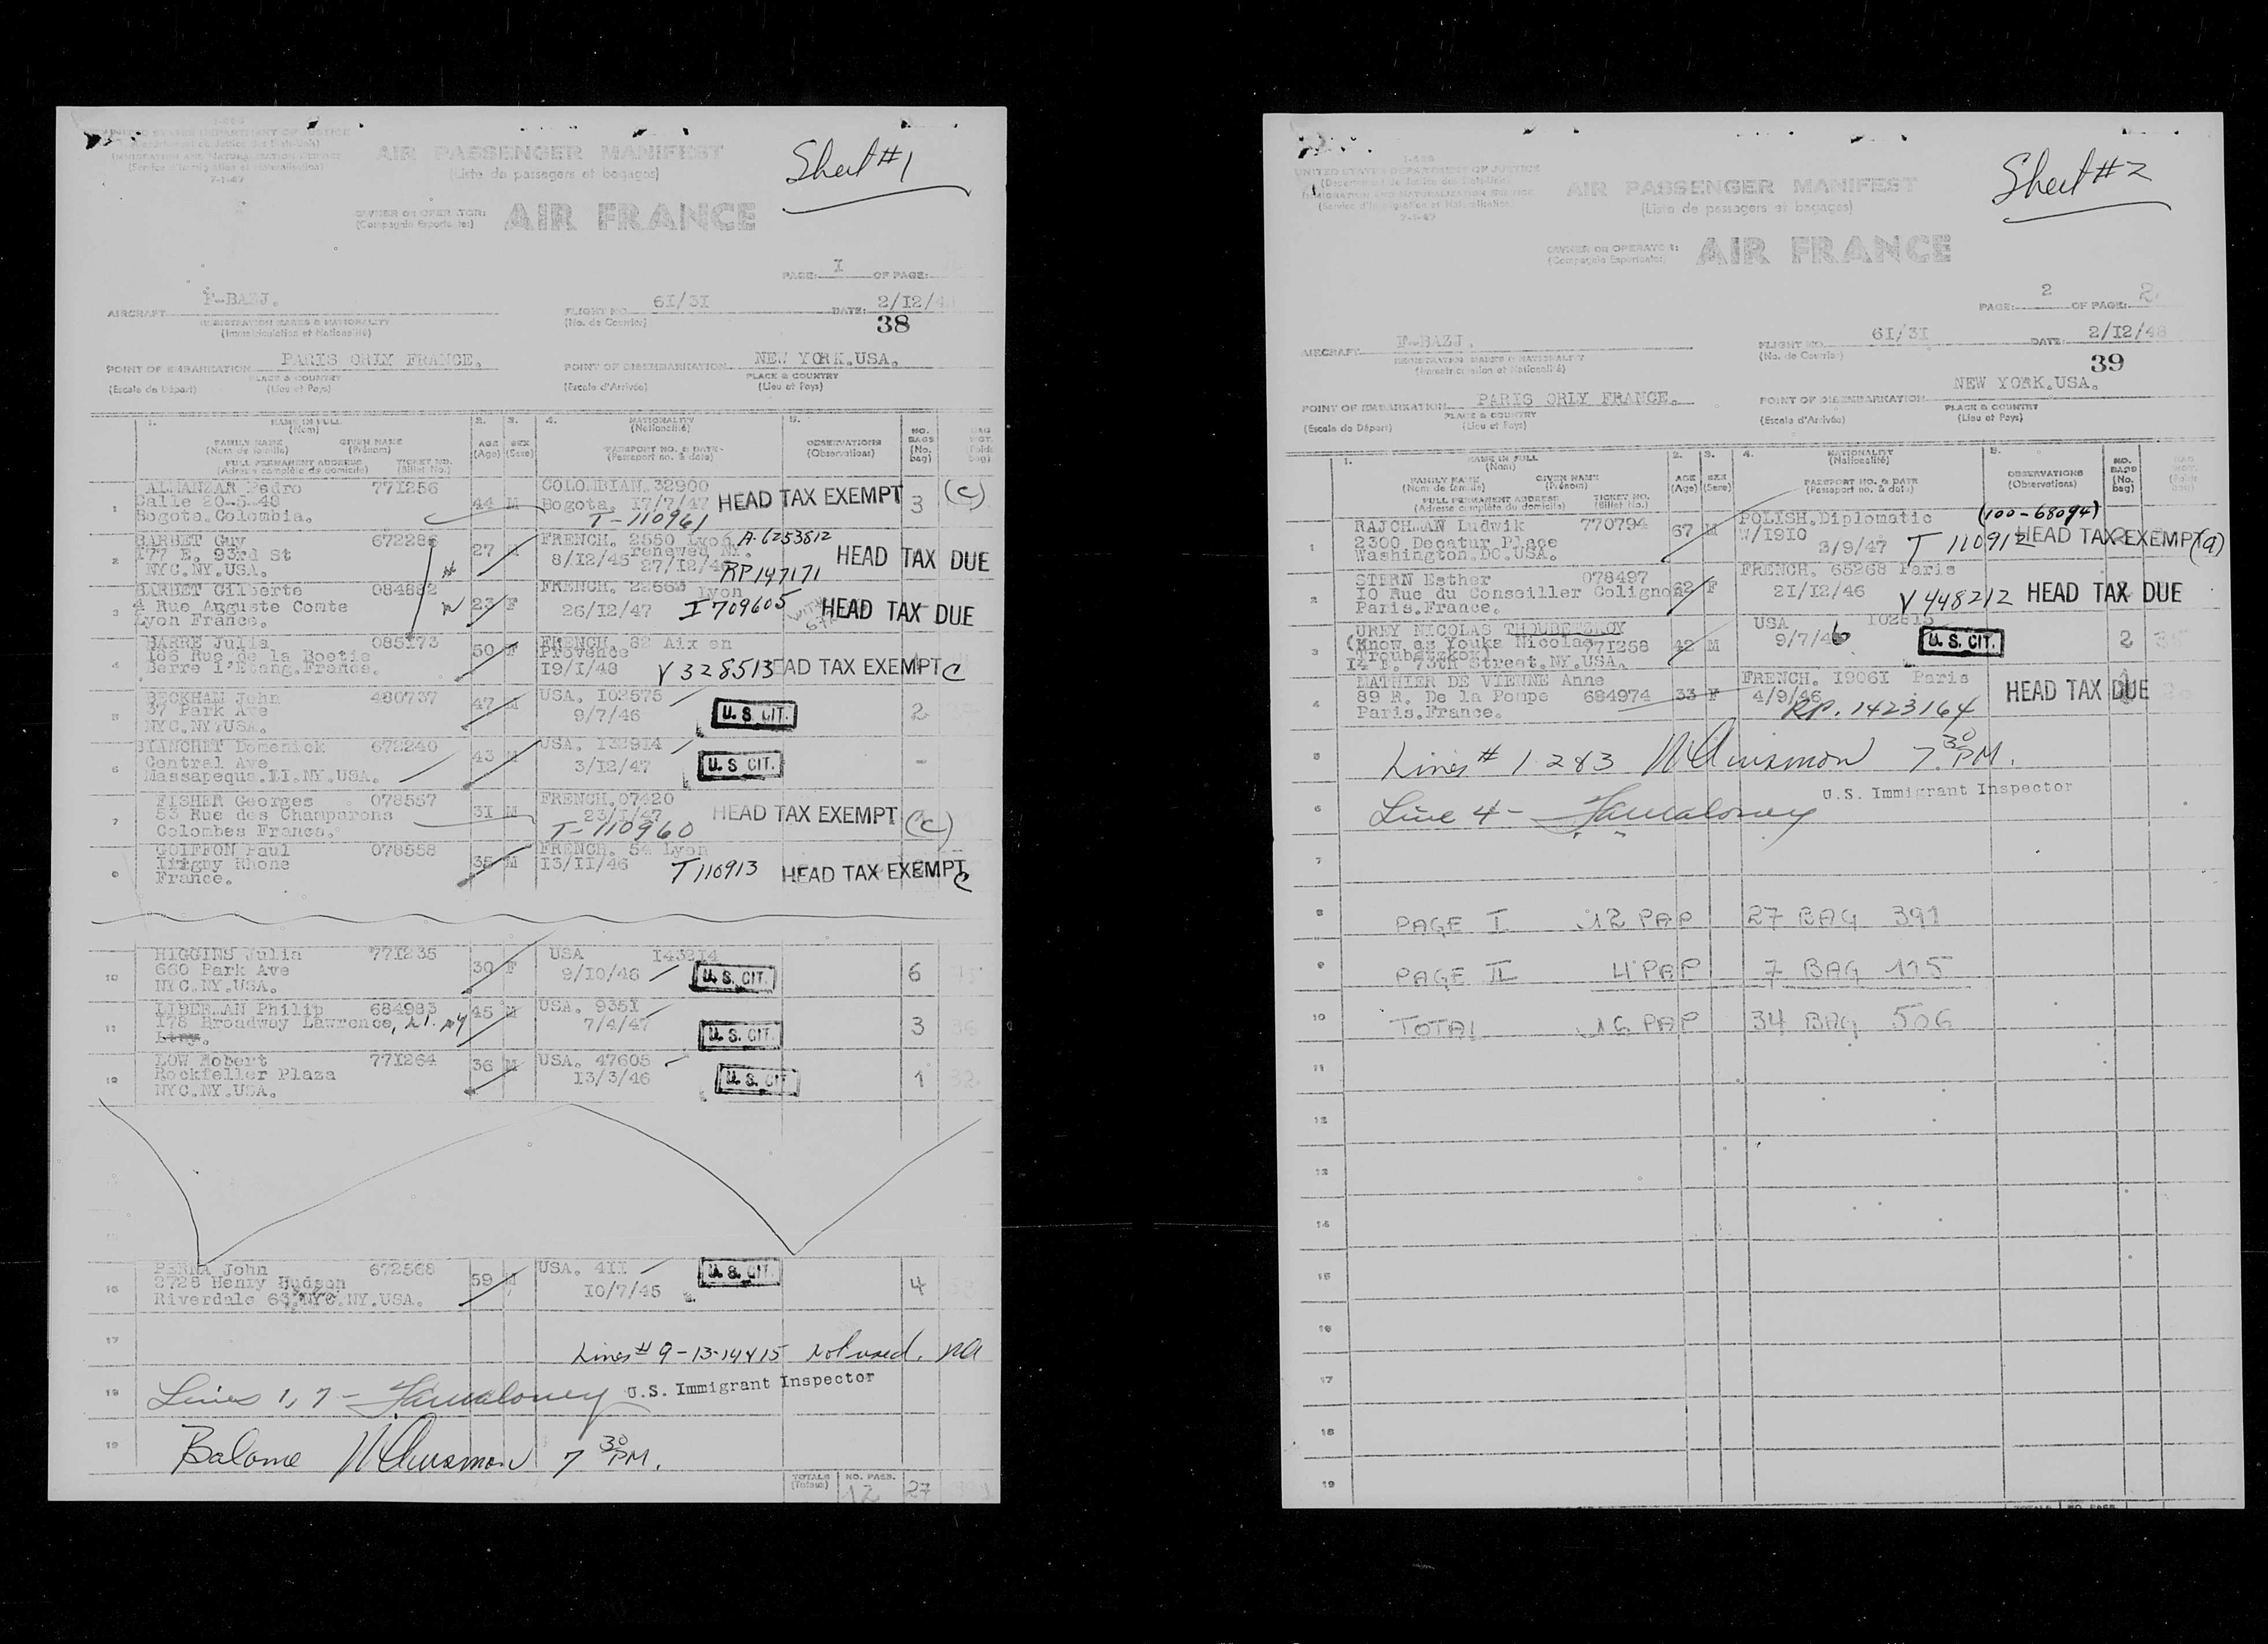 I-466
UNITED STATES DEPARTMENT OF JUSTICE
(Département de Justice des Etats-Unis)
IMMIGRATION AND NATURALIZATION SERVICE
(Service d'Immigration et Naturalisation)
7-1-47
AIR PASSENGER MANIFEST
(Liste de passagers et bagages)
Sheet #1
OWNER OR OPERATOR:
AIR FRANCE
PAGE: I OF PAGE:
F-BAZJ. 6I/3I 2/I2/48
AIRCRAFT FLIGHT NO. DATE:
REGISTRATION MARKS & NATIONALITY (No. de Courrier) 38
(Immatriculation et Nationalité)
PARIS ORLY FRANCE. NEW YORK.USA.
POINT OF EMBARKATION POINT OF DISEMBARKATION
PLACE & COUNTRY PLACE & COUNTRY
(Escale de Départ) (Lieu et Pays) (Escale d'Arrivée) (Lieu et Pays)
1. NAME IN FULL 2. 3. 4. NATIONALITY 5. NO. BAGS
(Nom) (Nationalité)
FAMILY NAME GIVEN NAME AGE SEX OBSERVATIONS
(Nom de famille) (Prénom) (Age) (Sexe) PASSPORT NO. & DATE (Observations)
FULL PERMANENT ADDRESS TICKET NO. (Passeport no. & date)
(Adresse complète de domicile) (Billet No.)
1 ALMANZAR Pedro 77I256 44 M COLOMBIAN 32900 HEAD TAX EXEMPT 3 (C)
Calle 20-5-40 Bogota. I7/7/47
Bogota.Colombia. T-110961
2 BARBET Guy 672286 27 M FRENCH. 2550 Lyon A-6253812
I77 E. 93rd St 8/I2/45 renewed NY. HEAD TAX DUE
NYC.NY.USA. 27/I2/46 RP147171
3 BARBET Gilberte 084882 23 F FRENCH. Lyon
4 Rue Auguste Comte 26/I2/47 I 709605 HEAD TAX DUE
Lyon France.
4 BARRE Julia 085I73 50 F FRENCH. 82 Aix en
I86 Rue de la Boetie Provence
Berre l'Etang.France. I9/I/48 V 328513 HEAD TAX EXEMPT C
5 BECKHAM John 480737 47 M USA. I02575
37 Park Ave 9/7/46 U.S. CIT. 2
NYC.NY.USA.
6 BIANCHET Domenick 672240 43 M USA. I32914
Central Ave 3/I2/47 U.S CIT. -
Massapequa.LI.NY.USA.
7 FISHER Georges 078557 3I M FRENCH.07420 HEAD TAX EXEMPT (C)
53 Rue des Champarons 23/I/47
Colombes France. T-110960
8 GOIFFON Paul 078558 35 M FRENCH. 54 Lyon
Irigny Rhone I3/II/46 T110913 HEAD TAX EXEMPT C
France.
10 HIGGINS Julia 77I235 30 F USA I432I4
660 Park Ave 9/I0/46 U.S. CIT. 6
NYC.NY.USA.
11 LIBERMAN Philip 684983 45 M USA. 935I
I78 Broadway Lawrence, L.I. NY 7/4/47 U.S. CIT. 3
12 LOW Robert 77I264 36 M USA. 47605
Rockfeller Plaza I3/3/46 U.S. CIT 1
NYC.NY.USA.
16 PERNA John 672568 59 M USA. 4II U.S. CIT.
2728 Henry Hudson I0/7/45 4
Riverdale 63.NYC.NY.USA.
17 Lines # 9-13-14&15 not used.
18 Lines 1, 7 - U.S. Immigrant Inspector
19 Balance 7 30 PM.
TOTALS NO. PASS. 12 27
(Totaux)
I-466
UNITED STATES DEPARTMENT OF JUSTICE
(Département de Justice des Etats-Unis)
IMMIGRATION AND NATURALIZATION SERVICE
(Service d'Immigration et Naturalisation)
7-1-47
AIR PASSENGER MANIFEST
(Liste de passagers et bagages)
Sheet #2
OWNER OR OPERATOR:
AIR FRANCE
PAGE: 2 OF PAGE: 2
F-BAZJ. 6I/3I 2/I2/48
AIRCRAFT FLIGHT NO. DATE:
REGISTRATION MARKS & NATIONALITY (No. de Courrier) 39
(Immatriculation et Nationalité)
PARIS ORLY FRANCE. NEW YORK.USA.
POINT OF EMBARKATION POINT OF DISEMBARKATION
PLACE & COUNTRY PLACE & COUNTRY
(Escale de Départ) (Lieu et Pays) (Escale d'Arrivée) (Lieu et Pays)
1. NAME IN FULL 2. 3. 4. NATIONALITY 5. NO. BAGS
(Nom) (Nationalité)
FAMILY NAME GIVEN NAME AGE SEX PASSPORT NO. & DATE OBSERVATIONS
(Nom de famille) (Prénom) (Age) (Sexe) (Passeport no. & date) (Observations)
FULL PERMANENT ADDRESS TICKET NO.
(Adresse complète du domicile) (Billet No.)
1 RAJCHMAN Ludwik 770794 67 M POLISH.Diplomatic (100-68094)
2300 Decatur Place W/I9I0 HEAD TAX EXEMPT (a)
Washington.DC.USA. 3/9/47 T 110912
2 STERN Esther 078497 62 F FRENCH. 65268 Paris
I0 Rue du Conseiller Colignon 2I/I2/46 HEAD TAX DUE
Paris.France. V 448212
3 UREY NICOLAS TROUBETZKOY USA I028I5
(Know as Youka Nicolas 77I258 42 M 9/7/46 U.S. CIT. 2
Troubetzkoy)
I4 E. 75th Street.NY.USA.
4 MATHIER DE VIENNE Anne FRENCH. I906I Paris
89 R. De la Pompe 684974 33 F 4/9/46 HEAD TAX DUE
Paris.France. RP. 1423164
5 Lines # 1 2 & 3 7 30 PM.
U.S. Immigrant Inspector
6 Line 4 -
7
8 PAGE I 12 PAP 27 BAG 391
9 PAGE II 4 PAP 7 BAG 115
10 TOTAL 16 PAP 34 BAG 506
11
12
13
14
15
16
17
18
19